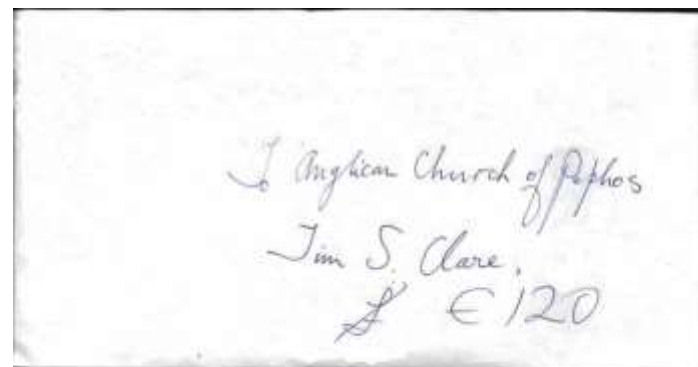 To Anglican Church of Paphos
Jim S. Clare.
€120